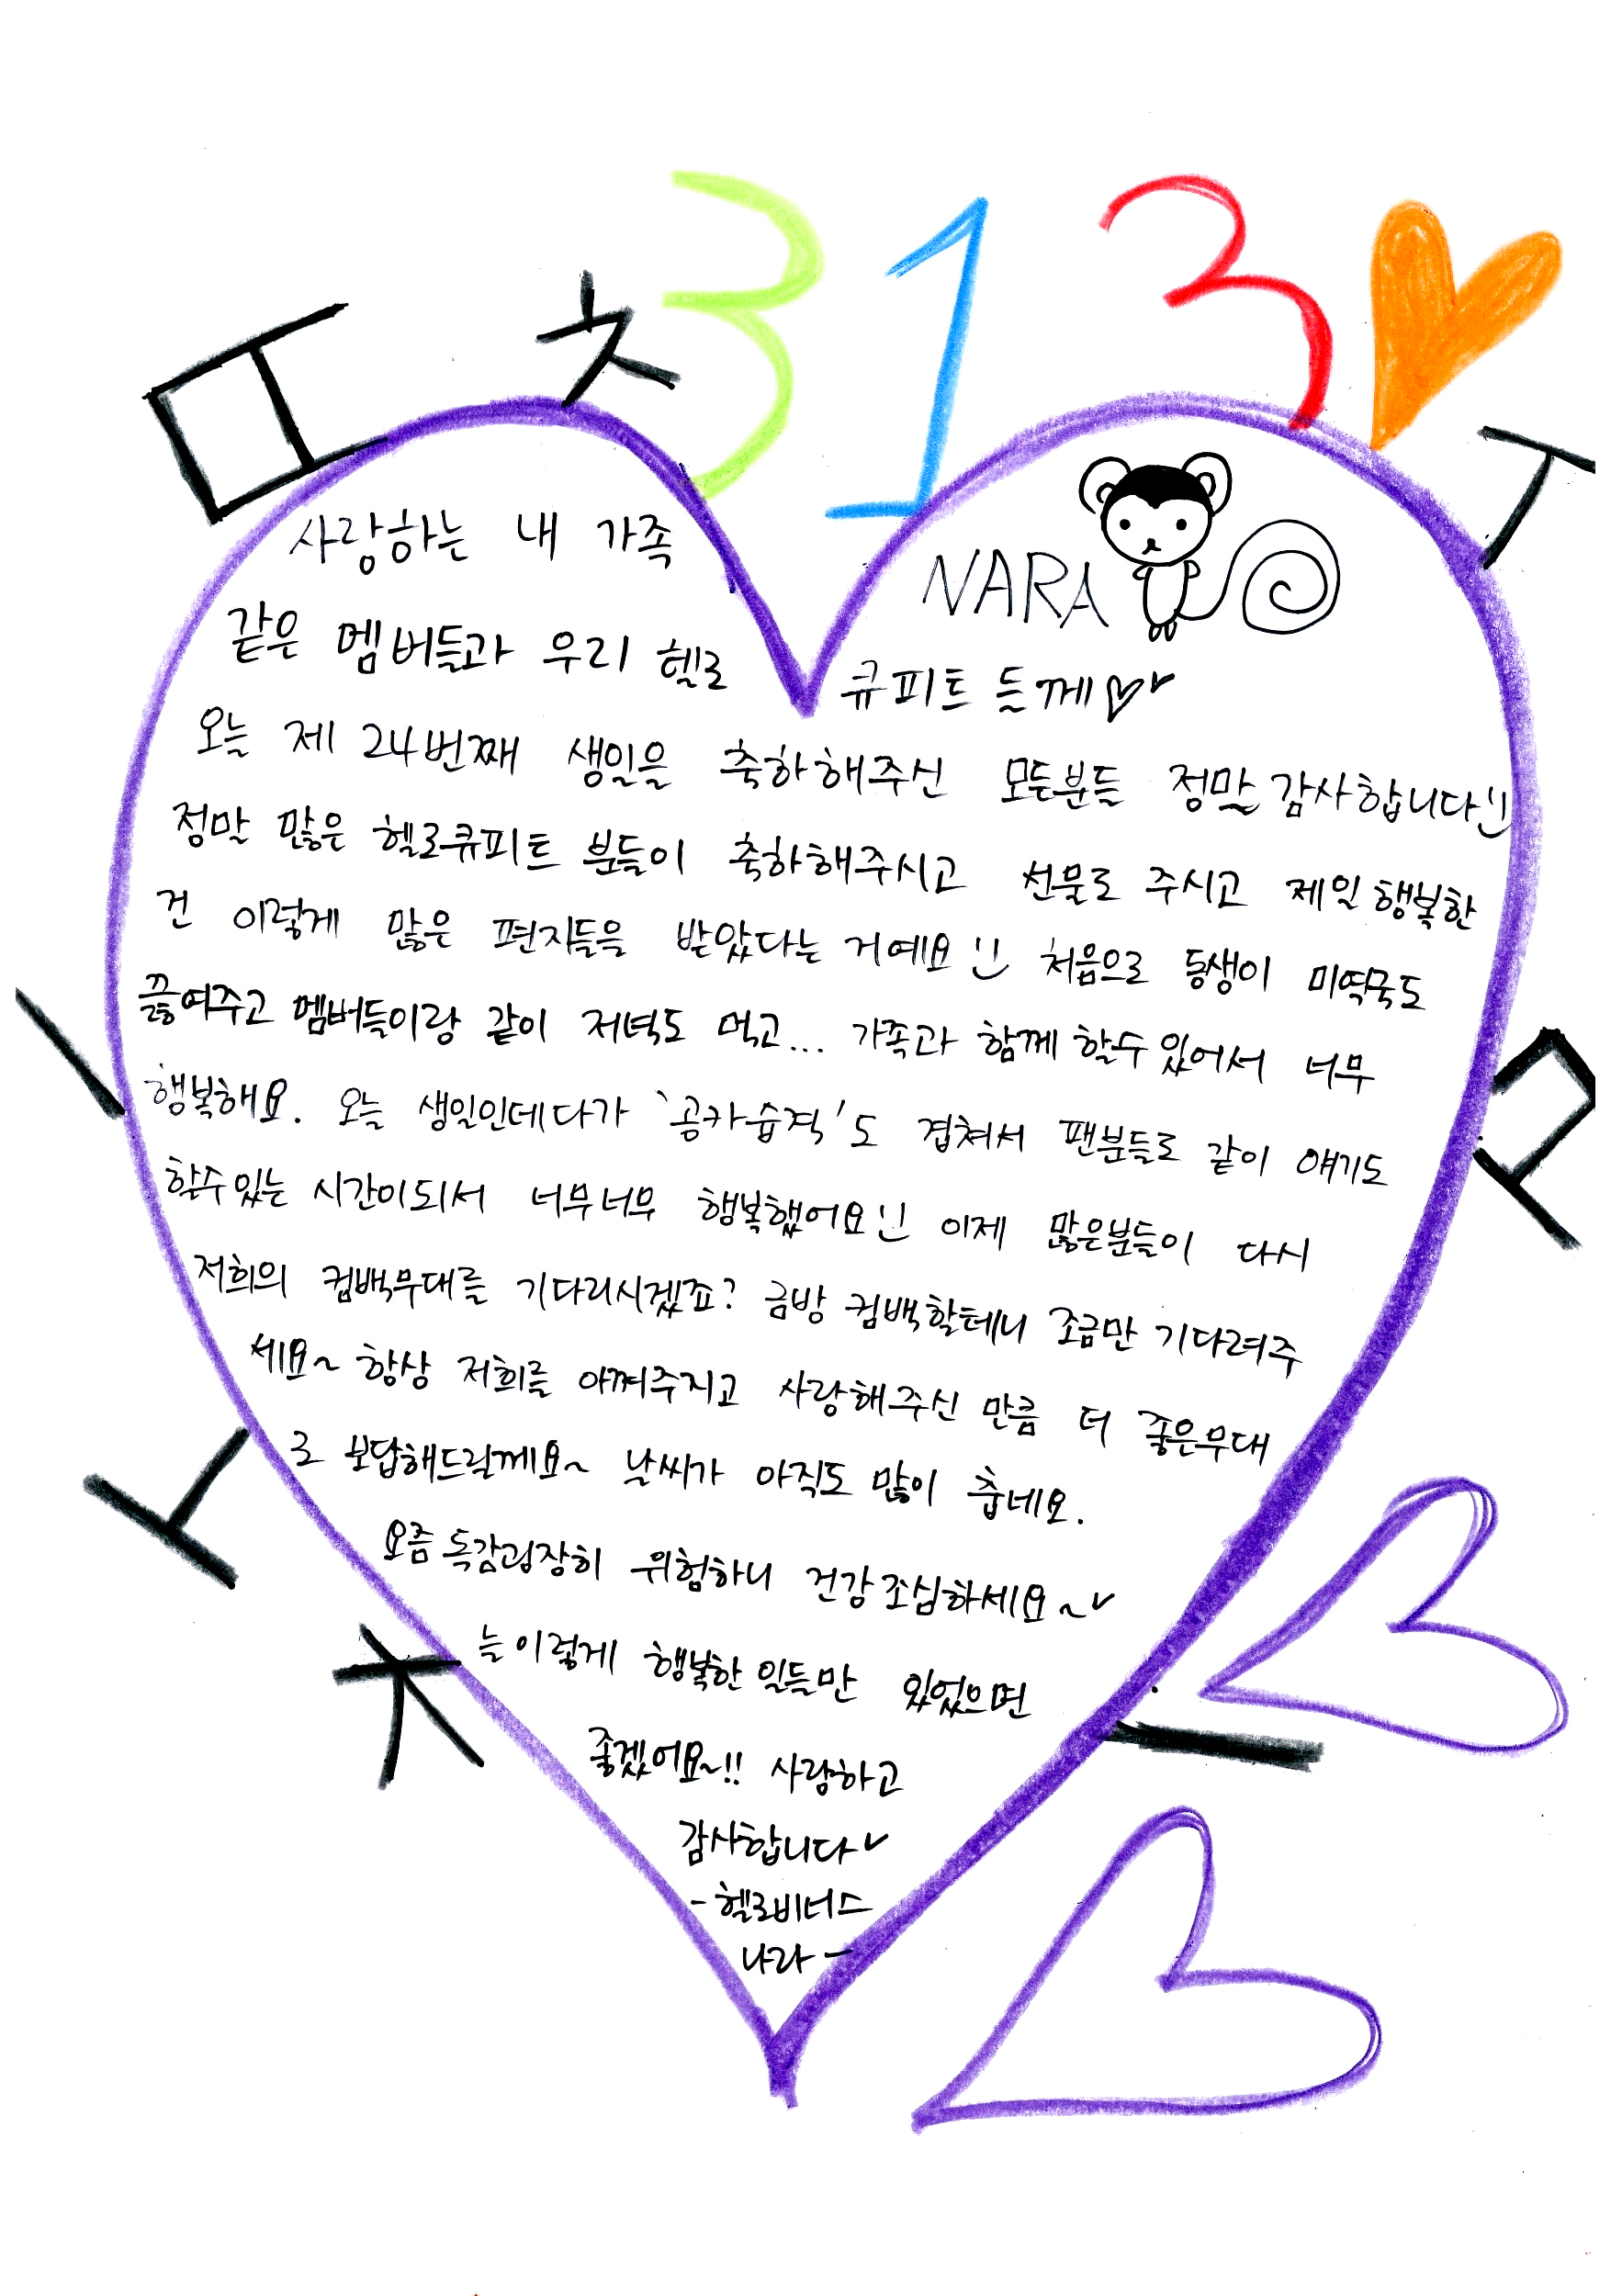 313
NARA
사랑하는 내 가족
같은 멤버들과 우리 헬로 큐피트 들께♡
오늘 제 24번째 생일을 축하해주신 모든분들 정말 감사합니다!!
정말 많은 헬로큐피트 분들이 축하해주시고 선물로 주시고 제일 행복한
건 이렇게 많은 편지들을 받았다는 거예요!! 처음으로 동생이 미역국도
끓여주고 멤버들이랑 같이 저녁도 먹고... 가족과 함께 할수 있어서 너무
행복해요. 오늘 생일인데다가 '공카습격'도 겹쳐서 팬분들로 같이 얘기도
할수있는 시간이되서 너무너무 행복했어요!! 이제 많은분들이 다시
저희의 컴백무대를 기다리시겠죠? 금방 컴백할테니 조금만 기다려주
세요~ 항상 저희를 아껴주지고 사랑해주신 만큼 더 좋은무대
로 보답해드릴께요~ 날씨가 아직도 많이 춥네요.
요즘 독감굉장히 위험하니 건강조심하세요~
늘이렇게 행복한 일들만 있었으면
좋겠어요~!! 사랑하고
감사합니다
-헬로비너스
나라-